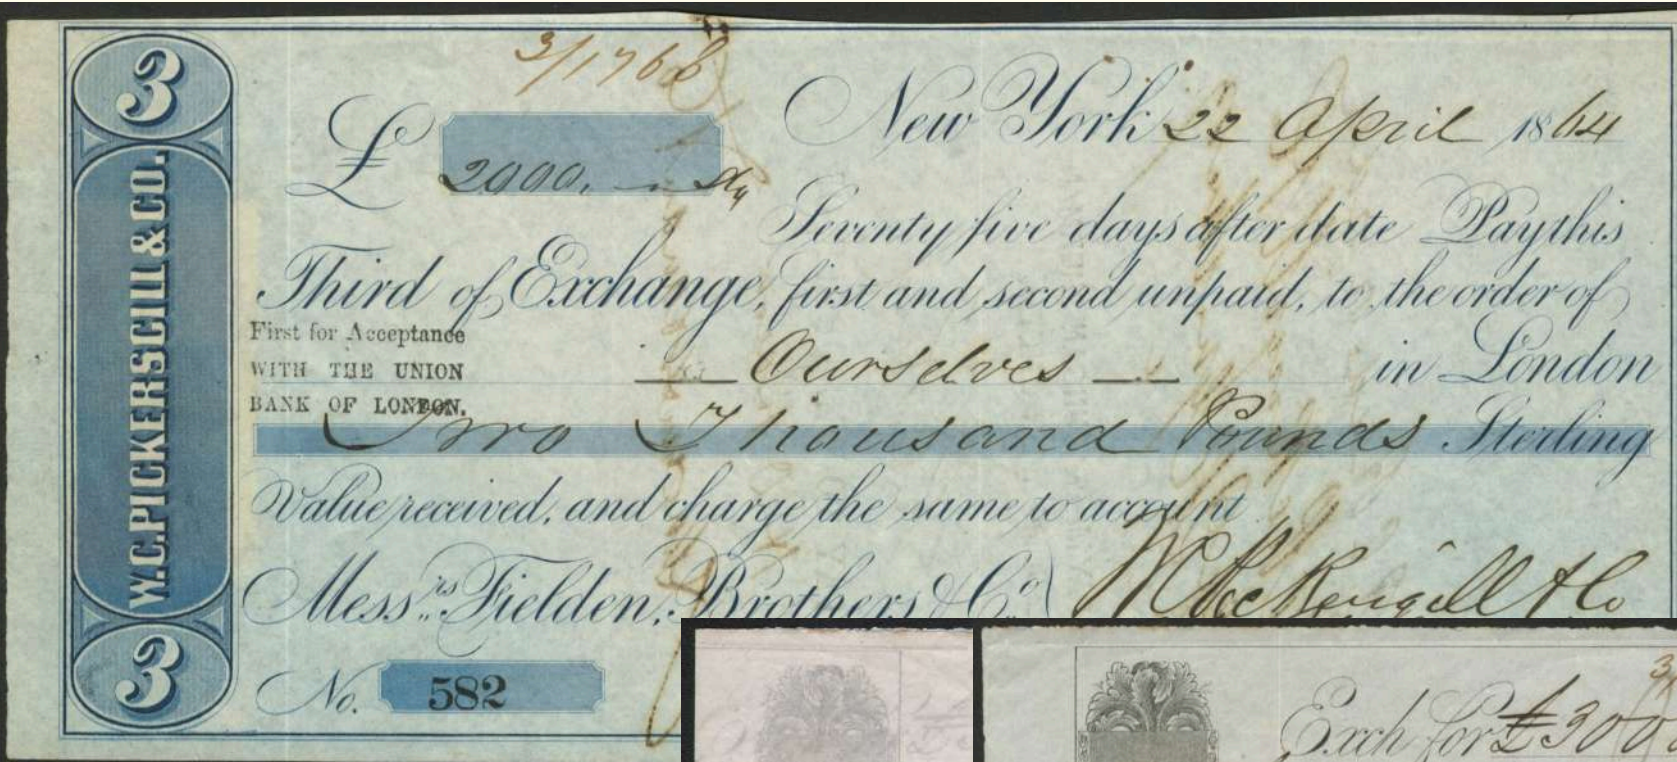 3
W.C.PICKERSGILL & CO.
3
3/1766
£ 2000.
New York 22 April 1864
Seventy five days after date Pay this
Third of Exchange, first and second unpaid, to the order of
First for Acceptance
WITH THE UNION
BANK OF LONDON.
Ourselves in London
Two Thousand Pounds Sterling
Value received, and charge the same to account
Mess.rs Fielden, Brothers & Co.
W C Pickersgill & Co
No. 582
Exch for £300